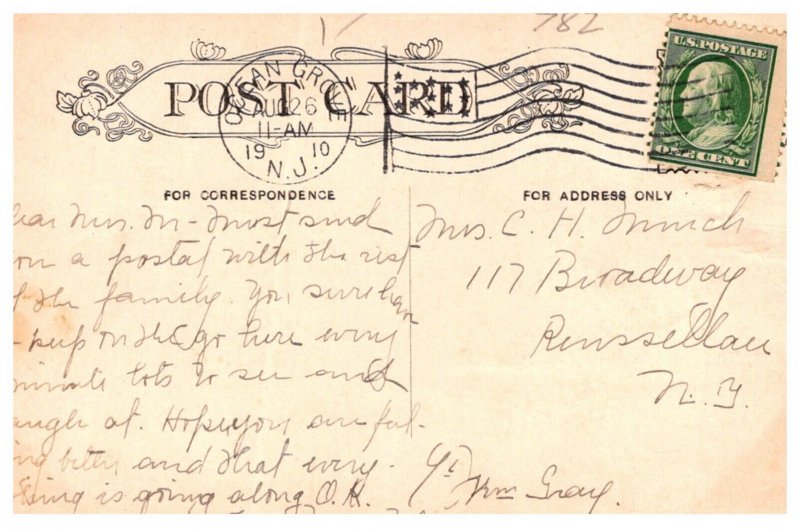 782
POST CARD
OCEAN GROVE
AUG 26
11-AM
1910
N.J.
U.S. POSTAGE
ONE CENT
FOR CORRESPONDENCE
FOR ADDRESS ONLY
ear Mrs. M- Must send
ou a postal with the rest
f the family. You sure have
keep on the go here every
minute lots to see and
augh at. Hope you are feel-
ing better and that every-
thing is going along O.K.
Mrs. C. H. Minch
117 Broadway
Rensselaer
N.Y.
Wm Gray.